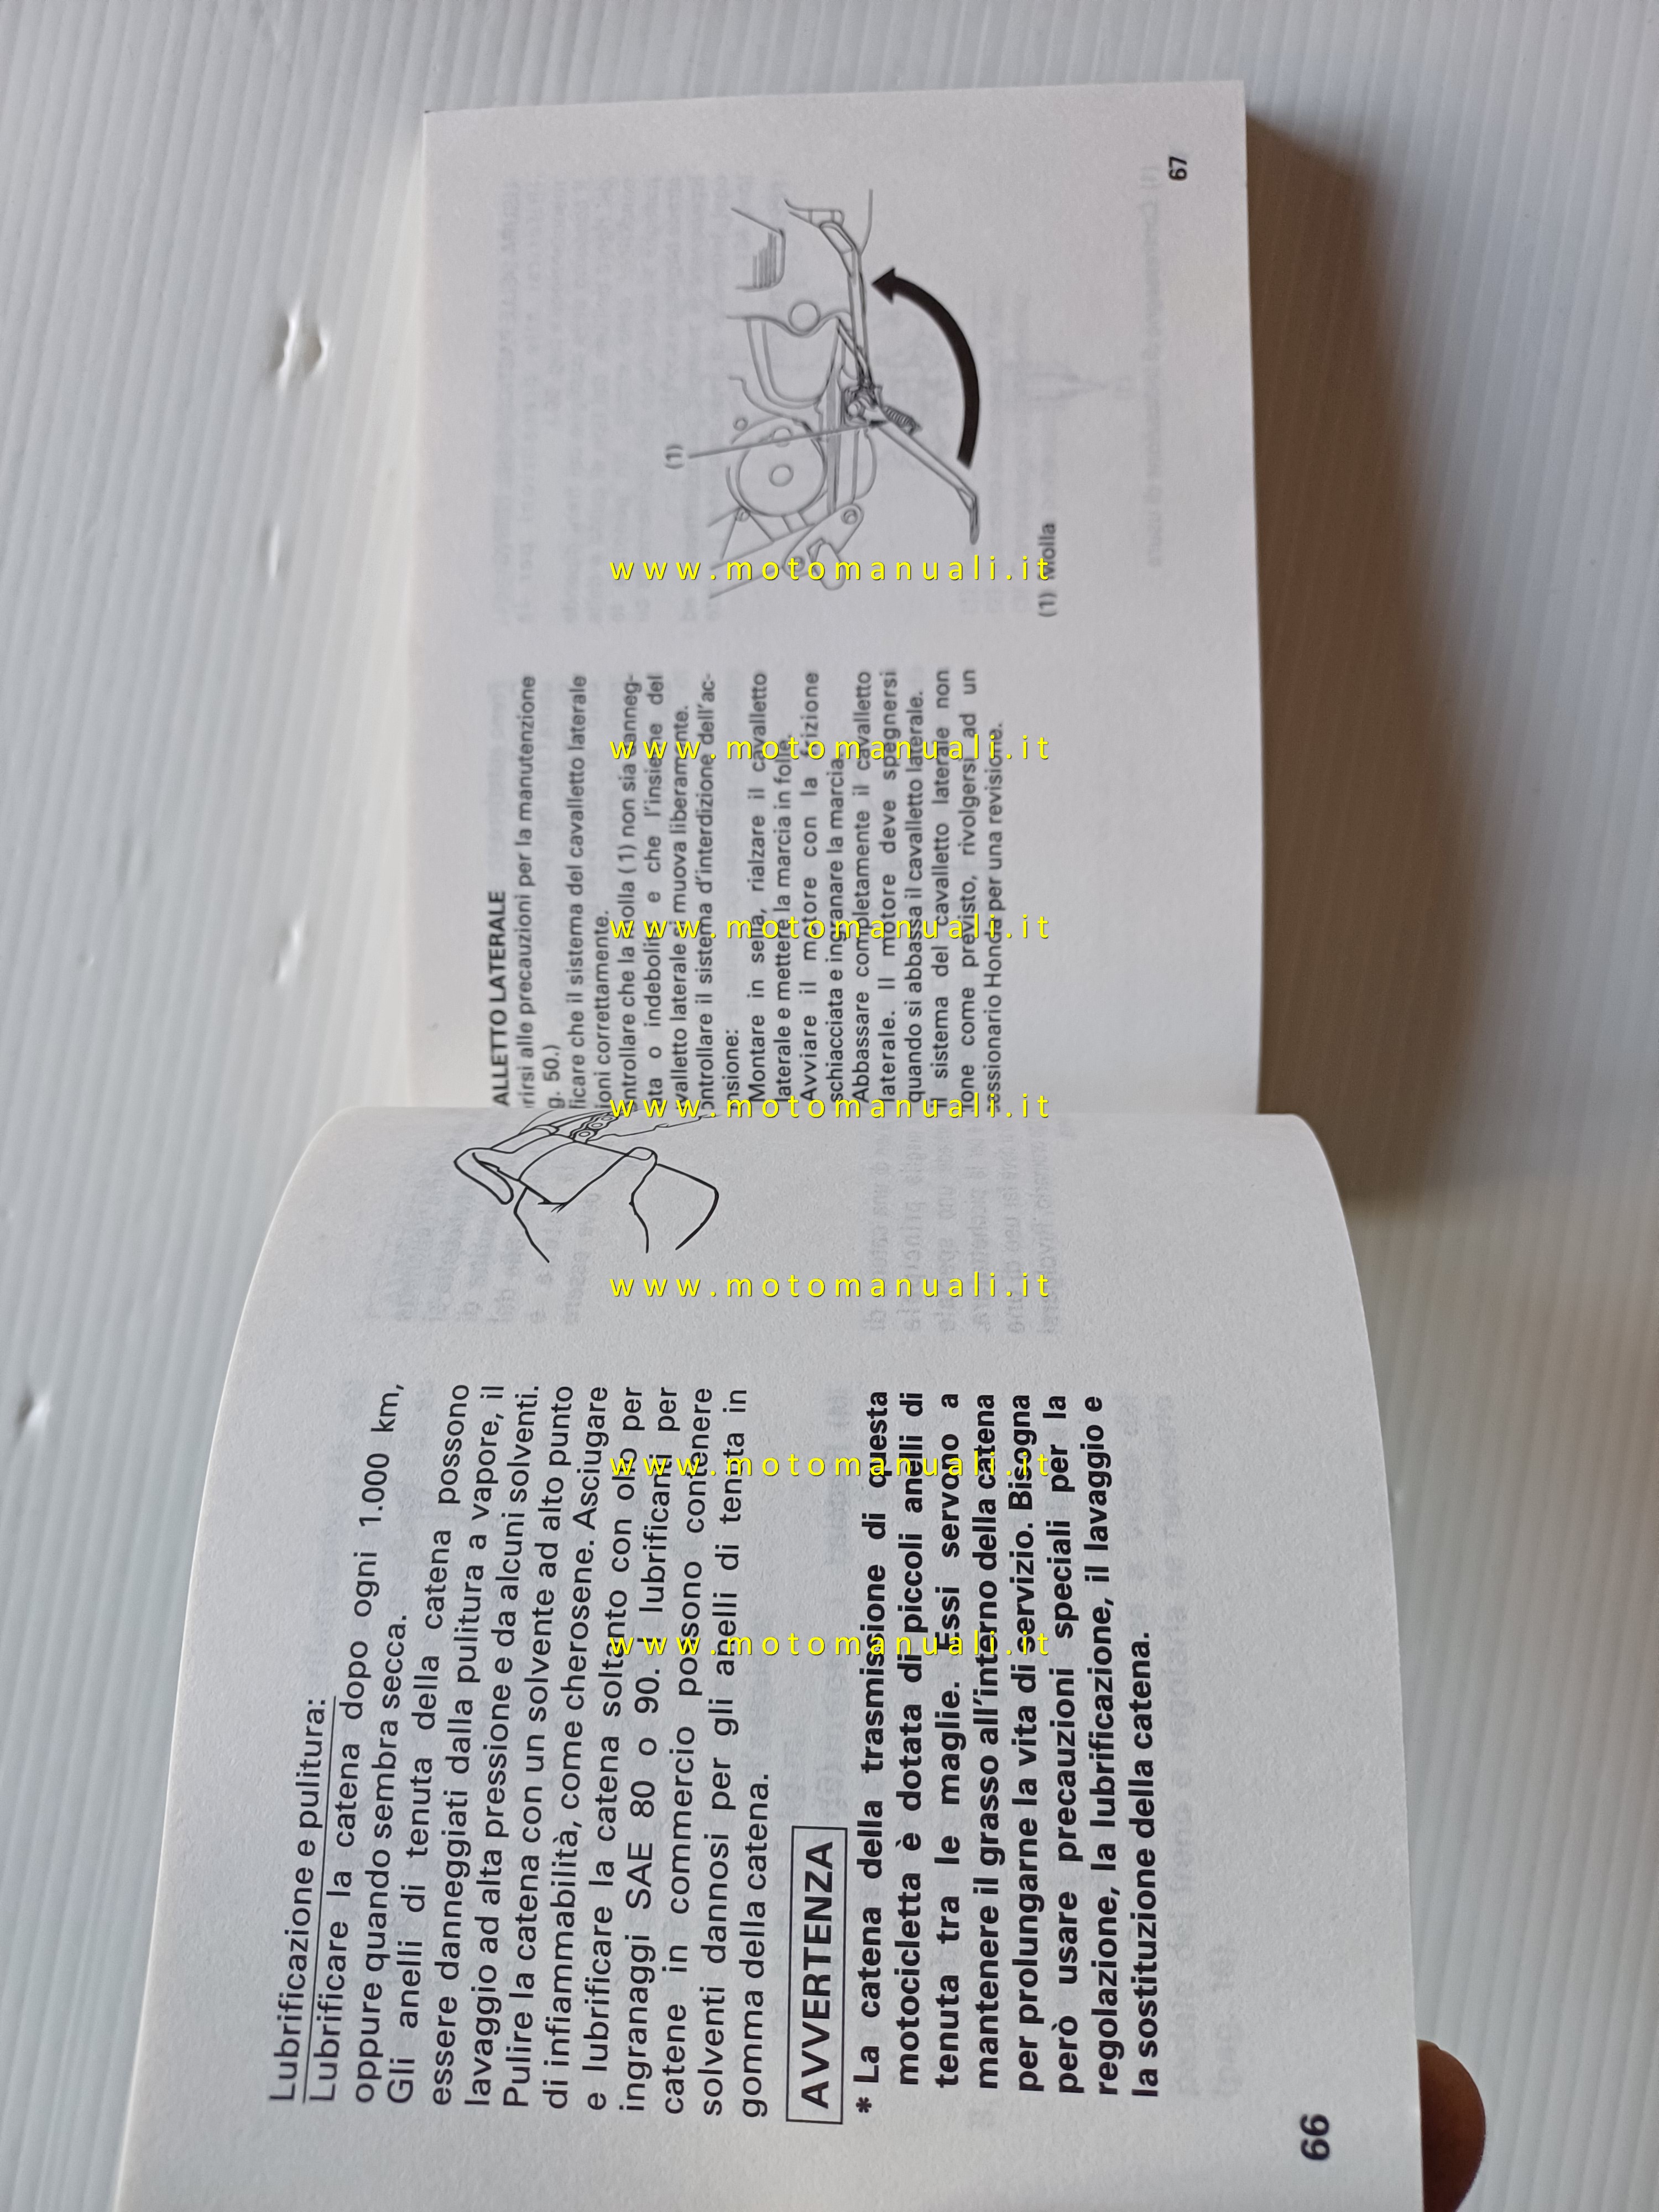 Lubrificazione e pulitura:
Lubrificare la catena dopo ogni 1.000 km,
oppure quando sembra secca.
Gli anelli di tenuta della catena possono
essere danneggiati dalla pulitura a vapore, il
lavaggio ad alta pressione e da alcuni solventi.
Pulire la catena con un solvente ad alto punto
di infiammabilità, come cherosene. Asciugare
e lubrificare la catena soltanto con olio per
ingranaggi SAE 80 o 90. I lubrificanti per
catene in commercio possono contenere
solventi dannosi per gli anelli di tenuta in
gomma della catena.
AVVERTENZA
* La catena della trasmissione di questa
motocicletta è dotata di piccoli anelli di
tenuta tra le maglie. Essi servono a
mantenere il grasso all'interno della catena
per prolungarne la vita di servizio. Bisogna
però usare precauzioni speciali per la
regolazione, la lubrificazione, il lavaggio e
la sostituzione della catena.
66
ALLETTO LATERALE
rirsi alle precauzioni per la manutenzione
g. 50.)
ficare che il sistema del cavalletto laterale
ioni correttamente.
ntrollare che la molla (1) non sia danneg-
ata o indebolita e che l'insieme del
valletto laterale si muova liberamente.
ontrollare il sistema d'interdizione dell'ac-
nsione:
Montare in sella, rialzare il cavalletto
laterale e mettere la marcia in folle.
Avviare il motore con la frizione
schiacciata e ingranare la marcia.
Abbassare completamente il cavalletto
laterale. Il motore deve spegnersi
quando si abbassa il cavalletto laterale.
il sistema del cavalletto laterale non
ione come previsto, rivolgersi ad un
cessionario Honda per una revisione.
(1)
(1) Molla
67
www.motomanuali.it
www.motomanuali.it
www.motomanuali.it
www.motomanuali.it
www.motomanuali.it
www.motomanuali.it
www.motomanuali.it